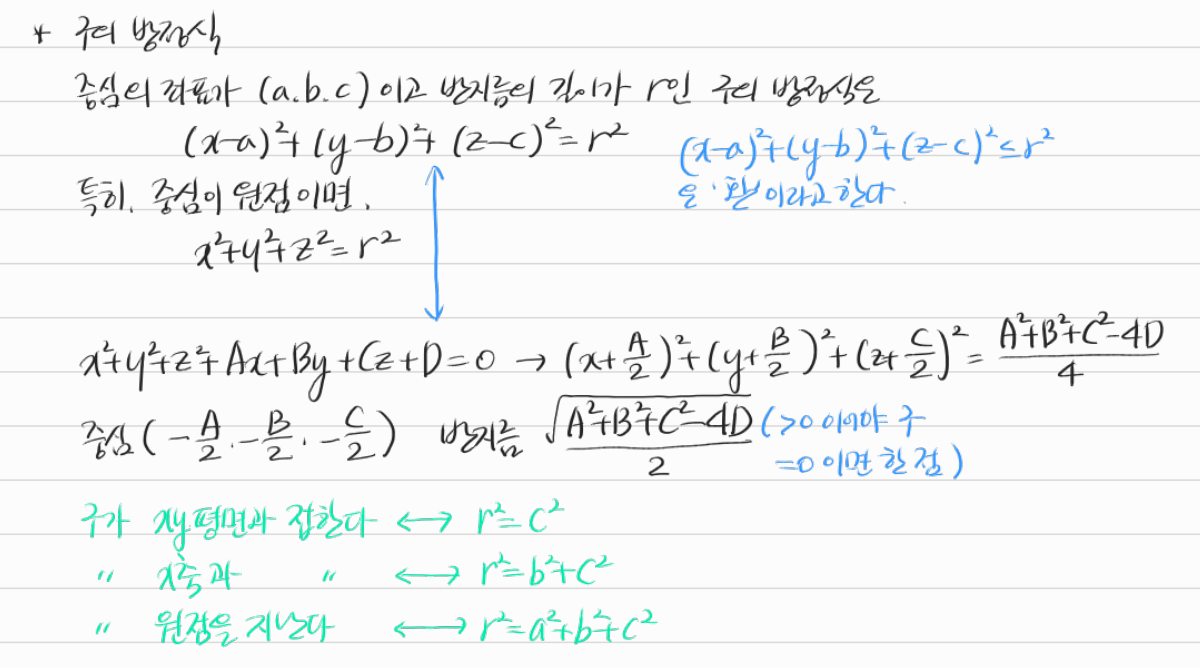 * 구의 방정식
중심의 좌표가 (a.b.c)이고 반지름의 길이가 r인 구의 방정식은
(x-a)²+(y-b)²+(z-c)²=r²
(x-a)²+(y-b)²+(z-c)²≤r²
은 '환'이라고 한다.
특히. 중심이 원점이면,
x²+y²+z²=r²
x²+y²+z²+Ax+By+Cz+D=0 → (x+A/2)²+(y+B/2)²+(z+C/2)²=(A²+B²+C²-4D)/4
중심(-A/2.-B/2.-C/2) 반지름 √(A²+B²+C²-4D)/2 (>0이어야 구
=0이면 한 점)
구가 xy평면과 접한다 ↔ r²=c²
" x축과 " ↔ r²=b²+c²
" 원점을 지난다 ↔ r²=a²+b²+c²